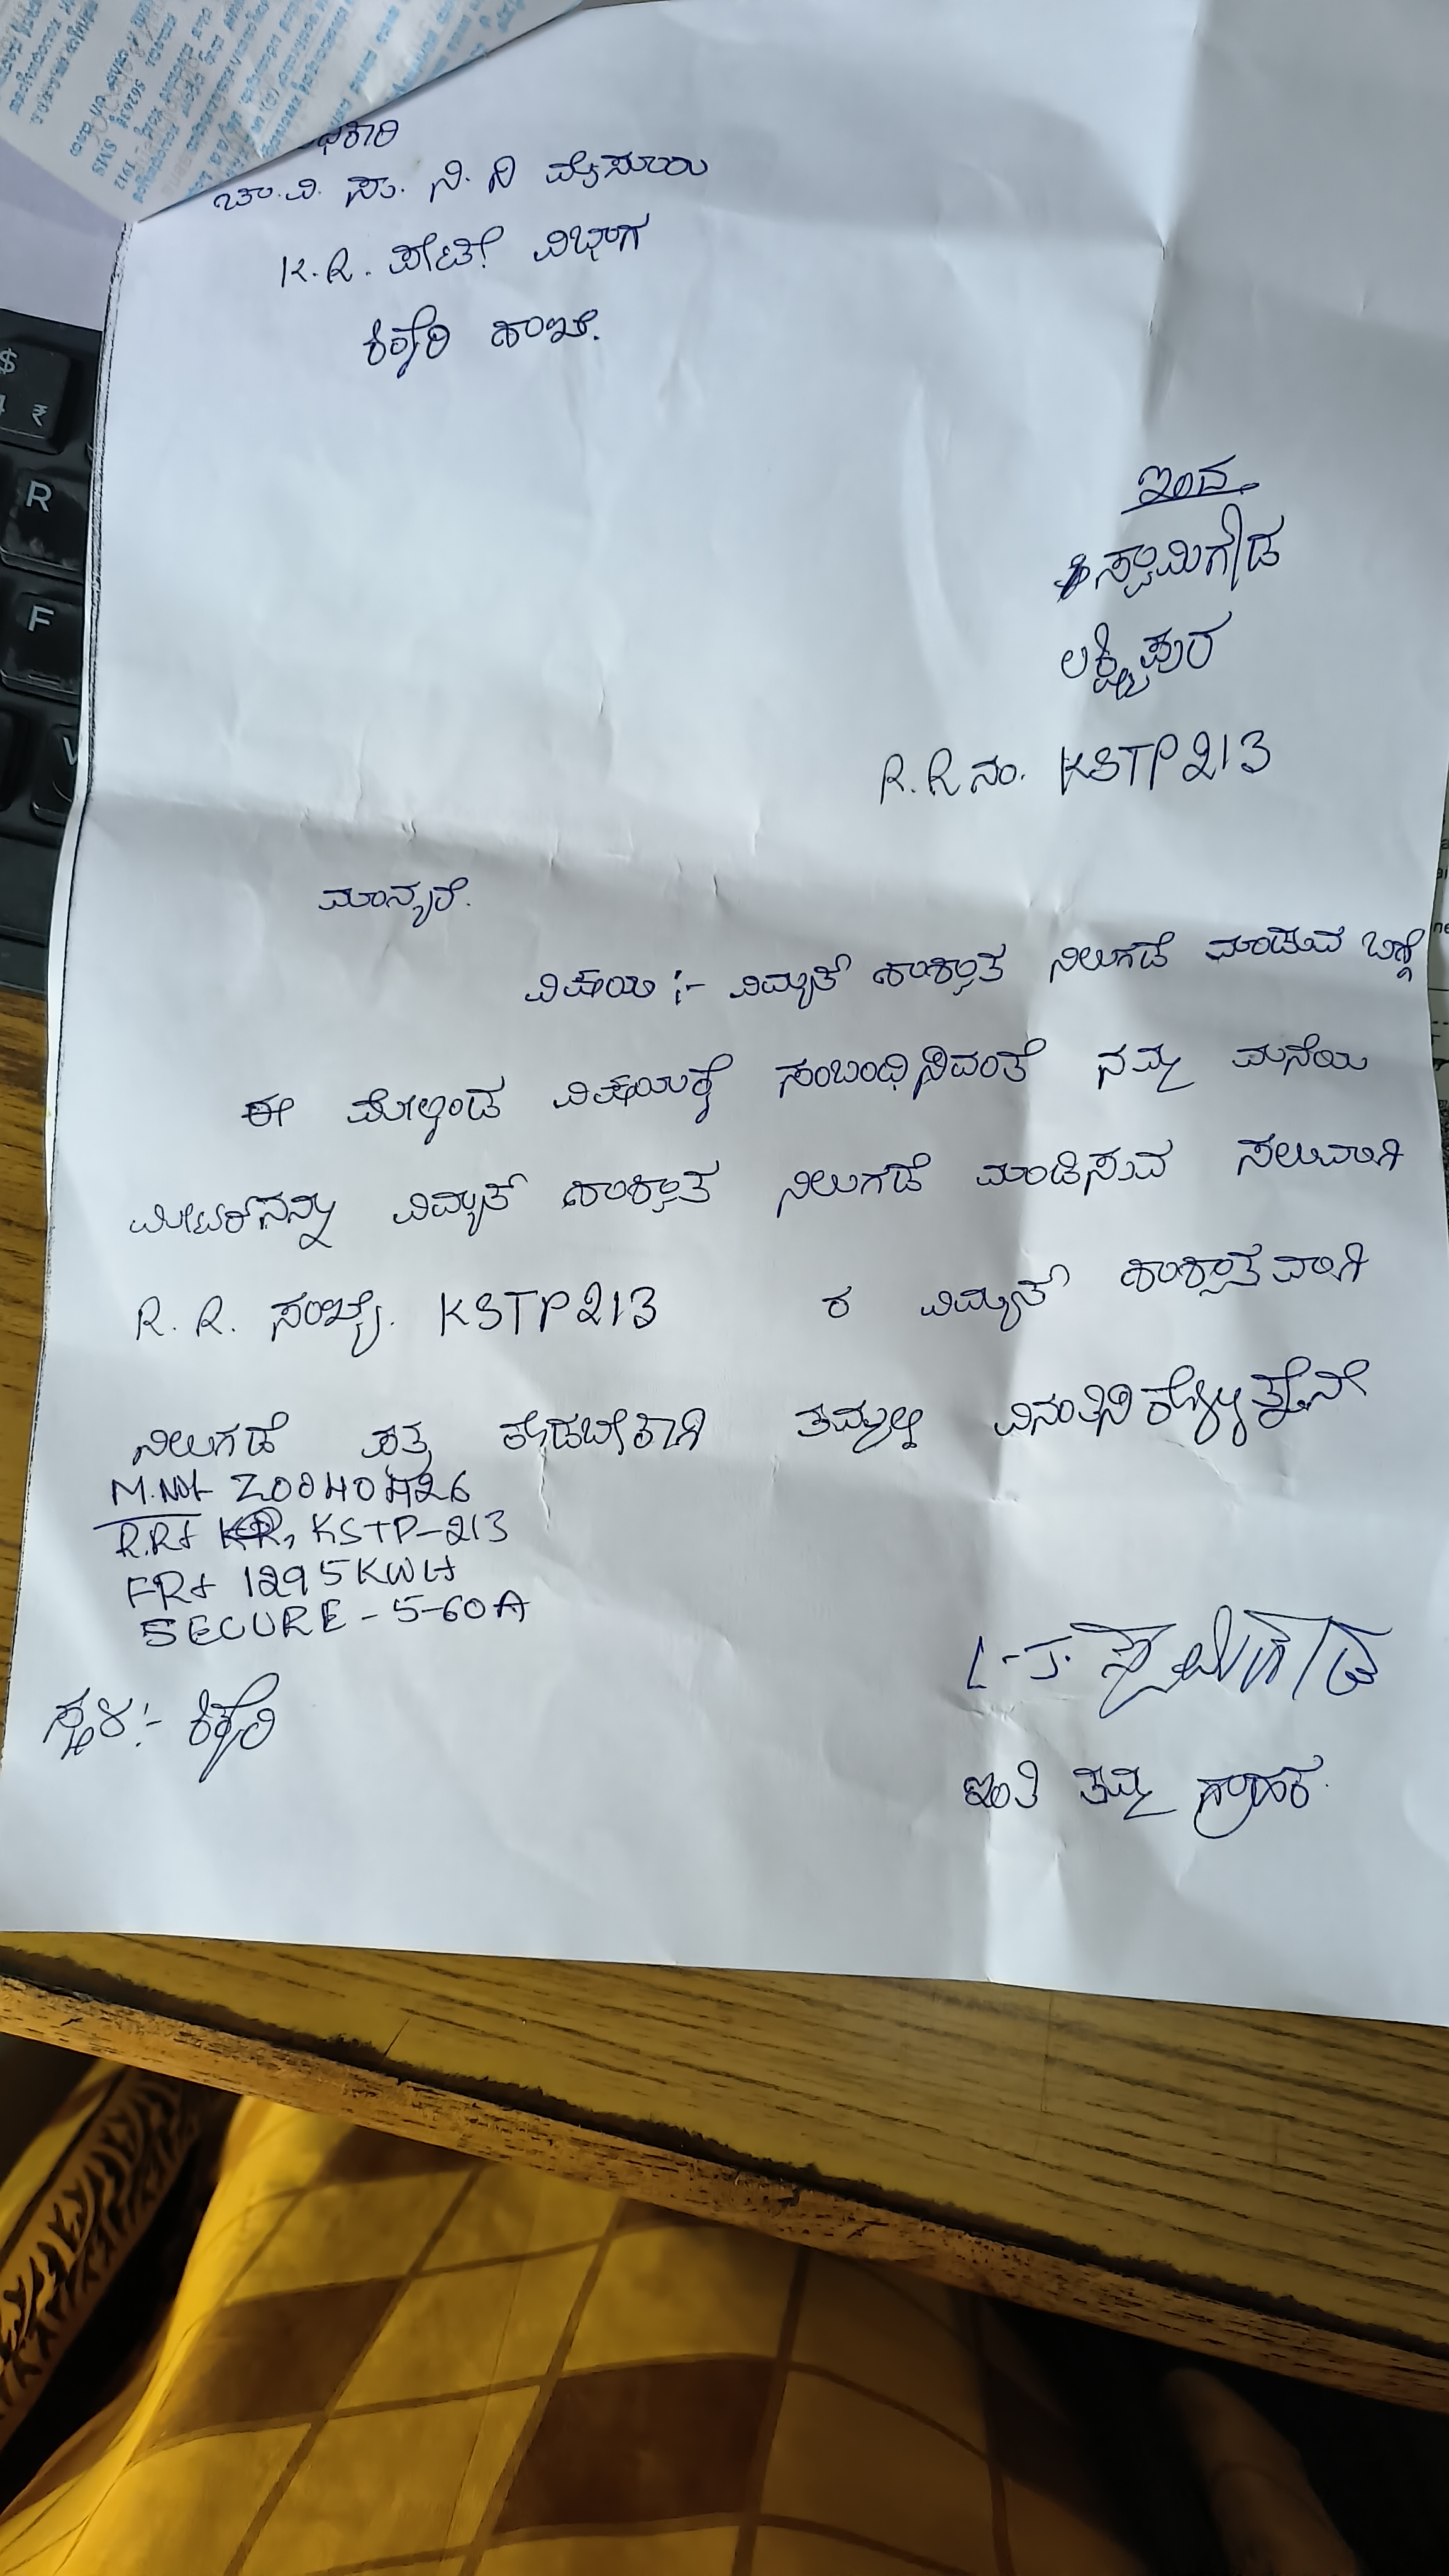 ಚಾ.ವಿ. ಸ. ನಿ. ನಿ ಮೈಸೂರು
K.R. ಪೇಟೆ ವಿಭಾಗ
ಕಿಕ್ಕೇರಿ ಶಾಖೆ.
ಇಂದ
ಸ್ವಾಮಿಗೌಡ
ಲಕ್ಷ್ಮೀಪುರ
R.R ನಂ. KSTP213
ಮಾನ್ಯರೆ.
ವಿಷಯ :- ವಿದ್ಯುತ್ ಶಾಶ್ವಾತ ನಿಲುಗಡೆ ಮಾಡುವ ಬಗ್ಗೆ
ಈ ಮೇಲ್ಕಂಡ ವಿಷಯಕ್ಕೆ ಸಂಬಂಧಿಸಿದಂತೆ ನಮ್ಮ ಮನೆಯ
ಮೀಟರ್‌ನನ್ನು ವಿದ್ಯುತ್ ಶಾಶ್ವಾತ ನಿಲುಗಡೆ ಮಾಡಿಸುವ ಸಲುವಾಗಿ
R. R. ಸಂಖ್ಯೆ. KSTP213 ರ ವಿದ್ಯುತ್ ಶಾಶ್ವಾತವಾಗಿ
ನಿಲುಗಡೆ ಪತ್ರ ಕೊಡಬೇಕಾಗಿ ತಮ್ಮಲ್ಲಿ ವಿನಂತಿಸಿಕೊಳ್ಳುತ್ತೇನೆ
R.R KSTP-213
FR 1295KWH
SECURE - 5-60A
ಸ್ಥಳ:- ಕಿಕ್ಕೇರಿ
L-J. ಸ್ವಾಮಿಗೌಡ
ಇಂತಿ ತಮ್ಮ ಗ್ರಾಹಕ.